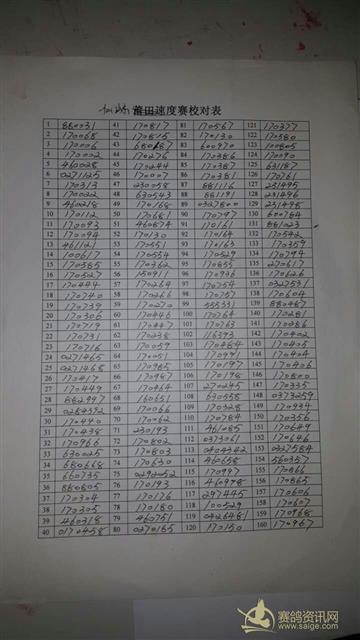 莆田速度赛校对表
1 880031 41 170817 81 170567 121 170377
2 170068 42 170815 82 170130 122 170580
3 170006 43 83 600970 123 100805
4 170002 44 170276 84 170386 124 170090
5 460028 45 170244 85 170387 125 631187
6 0271125 46 170007 86 170381 126 170761
7 170313 47 230058 87 881116 127 231495
8 170022 48 630543 88 881191 128 231496
9 460218 49 170168 89 0332800 129 231498
10 170112 50 170681 90 170797 130 600784
11 170093 51 460874 91 170161 131 881023
12 170094 52 170130 92 170164 132 170542
13 461121 53 170551 93 170163 133 170359
14 100617 54 170554 94 170529 134 170794
15 170585 55 170362 95 170855 135 270617
16 170527 56 150911 96 170936 136 170626
17 170444 57 170264 97 170754 137 0327531
18 170740 58 170266 98 170757 138 170604
19 170739 59 170270 99 139 880467
20 170306 60 170446 100 170764 140 170281
21 170719 61 170447 101 170763 141 170086
22 170731 62 170238 102 142 170402
23 170716 63 170059 103 170484 143 170405
24 0271465 64 170051 104 170971 144 170404
25 0271468 65 170965 105 170197 145 170406
26 170417 66 170967 106 170198 146
27 170449 67 170464 107 270245 147 170335
28 882997 68 160651 108 630558 148 0373259
29 0280372 69 170066 109 170528 149 170934
30 170440 70 170062 110 170784 150 170356
31 170438 71 230193 111 461085 151 170649
32 170966 72 170802 112 0373061 152 170646
33 630025 73 170803 113 0440342 153 0327584
34 680668 74 170630 114 460658 154 560357
35 660735 75 0292052 115 170997 155 170866
36 880805 76 170193 116 460998 156 170865
37 170304 77 170176 117 297445 157 170606
38 170305 78 170180 118 100529 158 170607
39 460318 79 460751 119 0426481 159 170968
40 0170458 80 0270185 120 170150 160 170967
赛鸽资讯网
www.saige.com